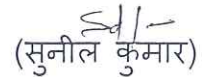 Sd/-
(सुनील कुमार)